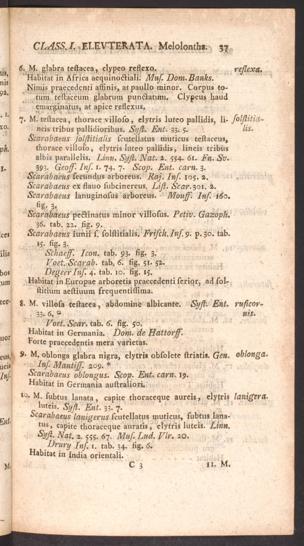 CLASS. I. ELEVTERATA. Melolontha. 37
6. M. glabra testacea, clypeo reflexo. reflexa.
Habitat in Africa aequinoctiali. Mus. Dom. Banks.
Nimis praecedenti affinis, at paullo minor. Corpus to-
tum testaceum glabrum punctatum. Clypeus haud
emarginatus, at apice reflexus.
7. M. testacea, thorace villoso, elytris luteo pallidis, li- solstitia-
neis tribus pallidioribus. Syst. Ent. 33. 5. lis.
Scarabaeus solstitialis scutellatus muticus testaceus,
thorace villoso, elytris luteo pallidis, lineis tribus
albis parallelis. Linn. Syst. Nat. 2. 554. 61. Fn. Sv.
393. Geoff. Ins. 1. 74. 7. Scop. Ent. carn. 3.
Scarabaeus secundus arboreus. Raj. Ins. 105. 2.
Scarabaeus ex flavo subcinereus. List. Scar. 301. 2.
Scarabaeus lanuginosus arboreus. Mouff. Ins. 160.
fig. 3.
Scarabaeus pectinatus minor villosus. Petiv. Gazoph.
36. tab. 22. fig. 9.
Scarabaeus Iunii s. solstitialis. Frisch. Ins. 9. p. 30. tab.
15. fig. 3.
Schaeff. Icon. tab. 93. fig. 3.
Voet. Scarab. tab. 6. fig. 51. 52.
Degeer Ins. 4. tab. 10. fig. 15.
Habitat in Europae arboretis praecedenti serior, ad sol-
stitium aestiuum frequentissima.
8. M. villosa testacea, abdomine albicante. Syst. Ent. ruficor-
33. 6. * nis.
Voet. Scar. tab. 6. fig. 50.
Habitat in Germania. Dom. de Hattorff.
Forte praecedentis mera varietas.
9. M. oblonga glabra nigra, elytris obsolete striatis. Gen. oblonga.
Ins. Mantiss. 209. *
Scarabaeus oblongus. Scop. Ent. carn. 19.
Habitat in Germania australiori.
10. M. subtus lanata, capite thoraceque aureis, elytris lanigera.
luteis. Syst. Ent. 33. 7.
Scarabaeus lanigerus scutellatus muticus, subtus lana-
tus, capite thoraceque auratis, elytris luteis. Linn.
Syst. Nat. 2. 555. 67. Mus. Lud. Vlr. 20.
Drury Ins. 1. tab. 34. fig. 6.
Habitat in India orientali.
C 3 11. M.